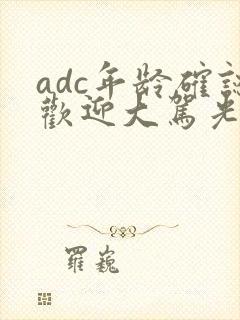 adc年龄確認
歡迎大駕光
羅巍